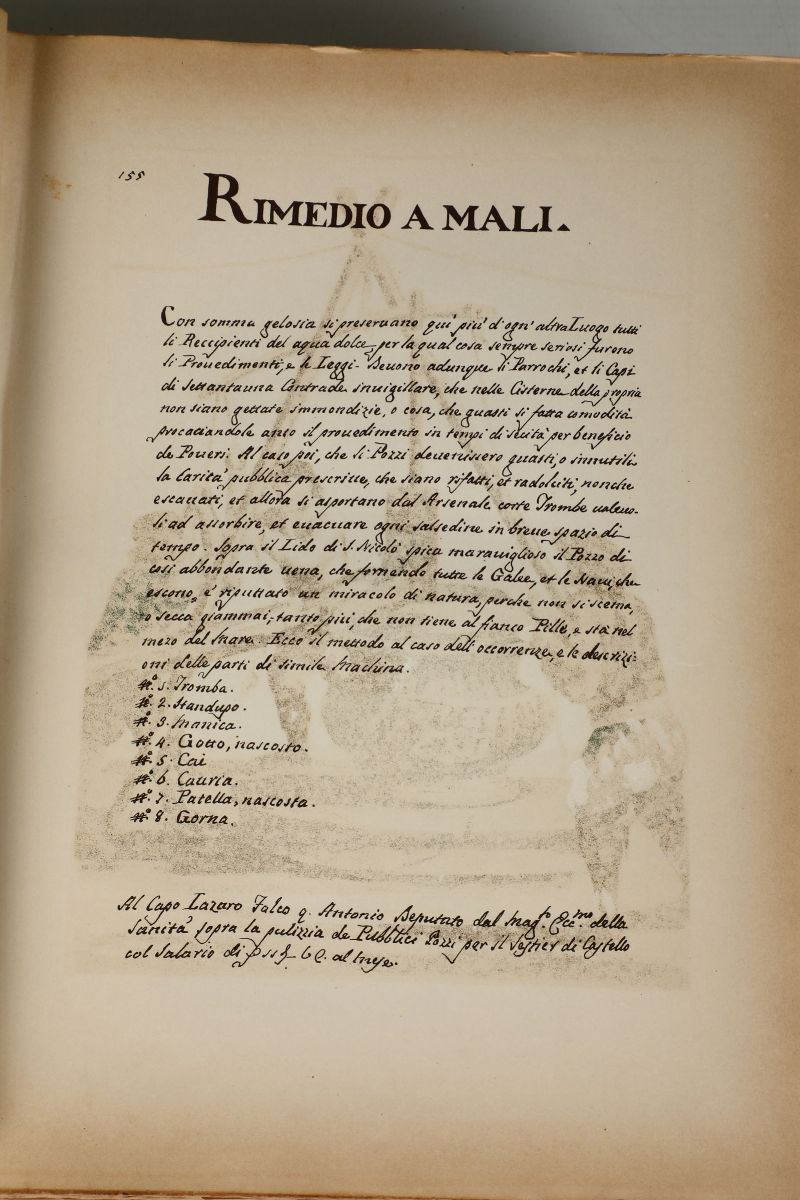 155
RIMEDIO A MALI.
Con somma gelosia si preseruano qui' piu' d'ogn' altra Luogo tutti
li Reccipienti del aqua dolce, per la qual cosa sempre seriosi furono
li Prouedimenti, e le Leggi. Deuono adunque li Parrochi, et li Capi
di Settantauna Contrade inuigillare, che nelle Cisterne della propria
non siano gettate immondizie, o cosa, che guasti si fatta comodità
procacciandole anco il prouedimento in tempi di secità per beneficio
de Poueri. Al caso poi, che li Pozzi deuenissero guasti, o innutili
la Carità pubblica prescriue, che siano rifatti, et radolciti, nonche
escauati, et allora si asportano dal Arsenale certe Trombe ualeuo-
li ad assorbire, et euacuare ogni salsedine in breue spazio di
tempo. Sopra il Lido di S. Nicolò spica marauiglioso il Pozzo di
cosi abbondante uena, che fornendo tutte le Galee, et le Naui, che
escono, e' riputtato un miracolo di natura, perche non si scema,
o secca giammai, tanto piu, che non tiene al fianco Pille, e stà nel
mezo del Mare. Ecco il mettodo al caso dell' occorrenze, e le descrizi-
oni delle parti di simile Machina.
N.º 1. Tromba.
N.º 2. Standupo.
N.º 3. Manica.
N.º 4. Gotto, nascosto.
N.º 5. Cai
N.º 6. Cauria.
N.º 7. Patella, nascosta.
N.º 8. Gorna.
Al Capo Lazaro Falco q. Antonio Deputato dal Mag.to Ecc.mo della
Sanità sopra la pulizzia de Pubblici Pozzi per il Sestier di Castello
col Salario di al Mese.